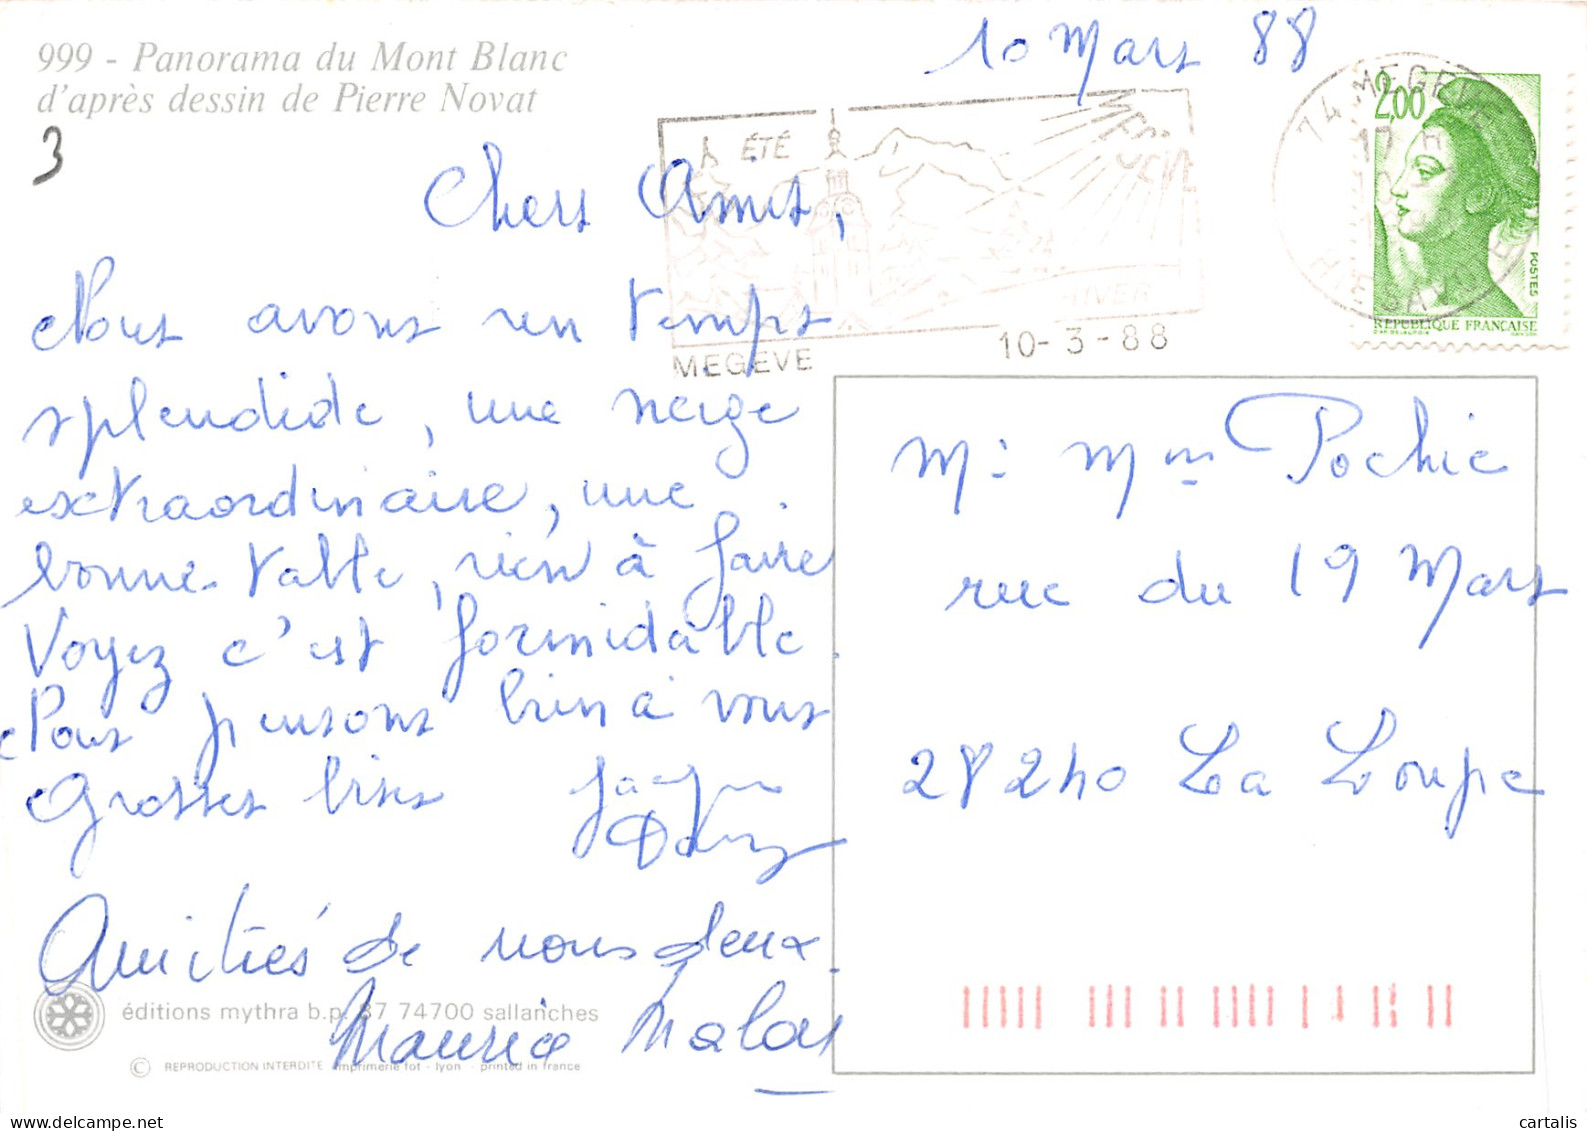 999 - Panorama du Mont Blanc
d'après dessin de Pierre Novat
3
10 Mars 88
ÉTÉ
HIVER
MEGEVE
10-3-88
74 MEGEVE
2,00
POSTES
RÉPUBLIQUE FRANÇAISE
Chers Amis,
Nous avons un temps
splendide, une neige
extraordinaire, une
bonne table, rien à faire
Voyez c'est formidable.
Nous pensons bien à vous
Grosses bises
Amitiés de nous deux.
Maurice
M: Mme Pochic
rue du 19 Mars
28240 La Loupe
éditions mythra b.p. 87 74700 sallanches
© REPRODUCTION INTERDITE imprimerie fot - lyon - printed in france
cartalis